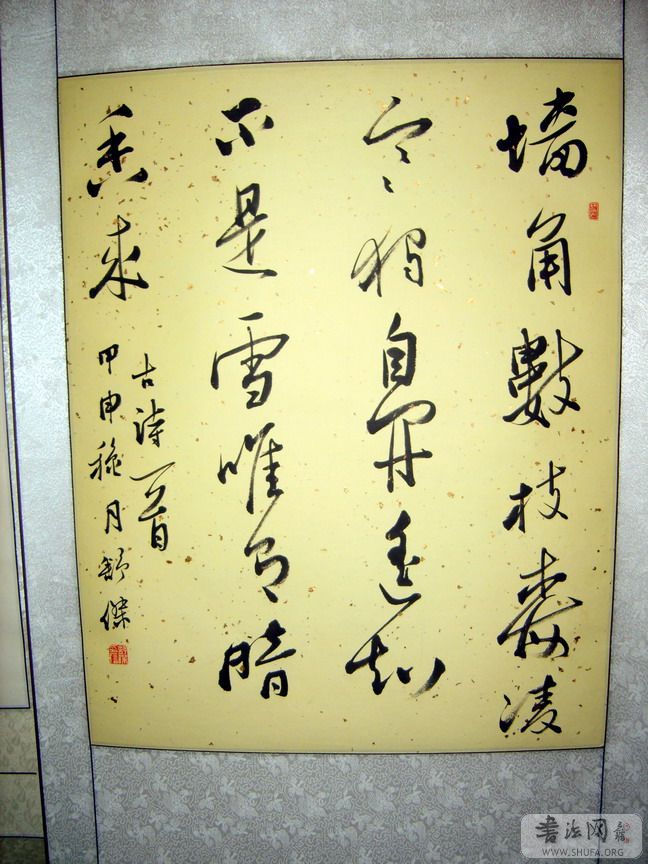 墙角數枝梅凌
寒独自開遥知
不是雪唯有暗
香来
古詩一首
甲申秋月舒傑
書法网
WWW.SHUFA.ORG